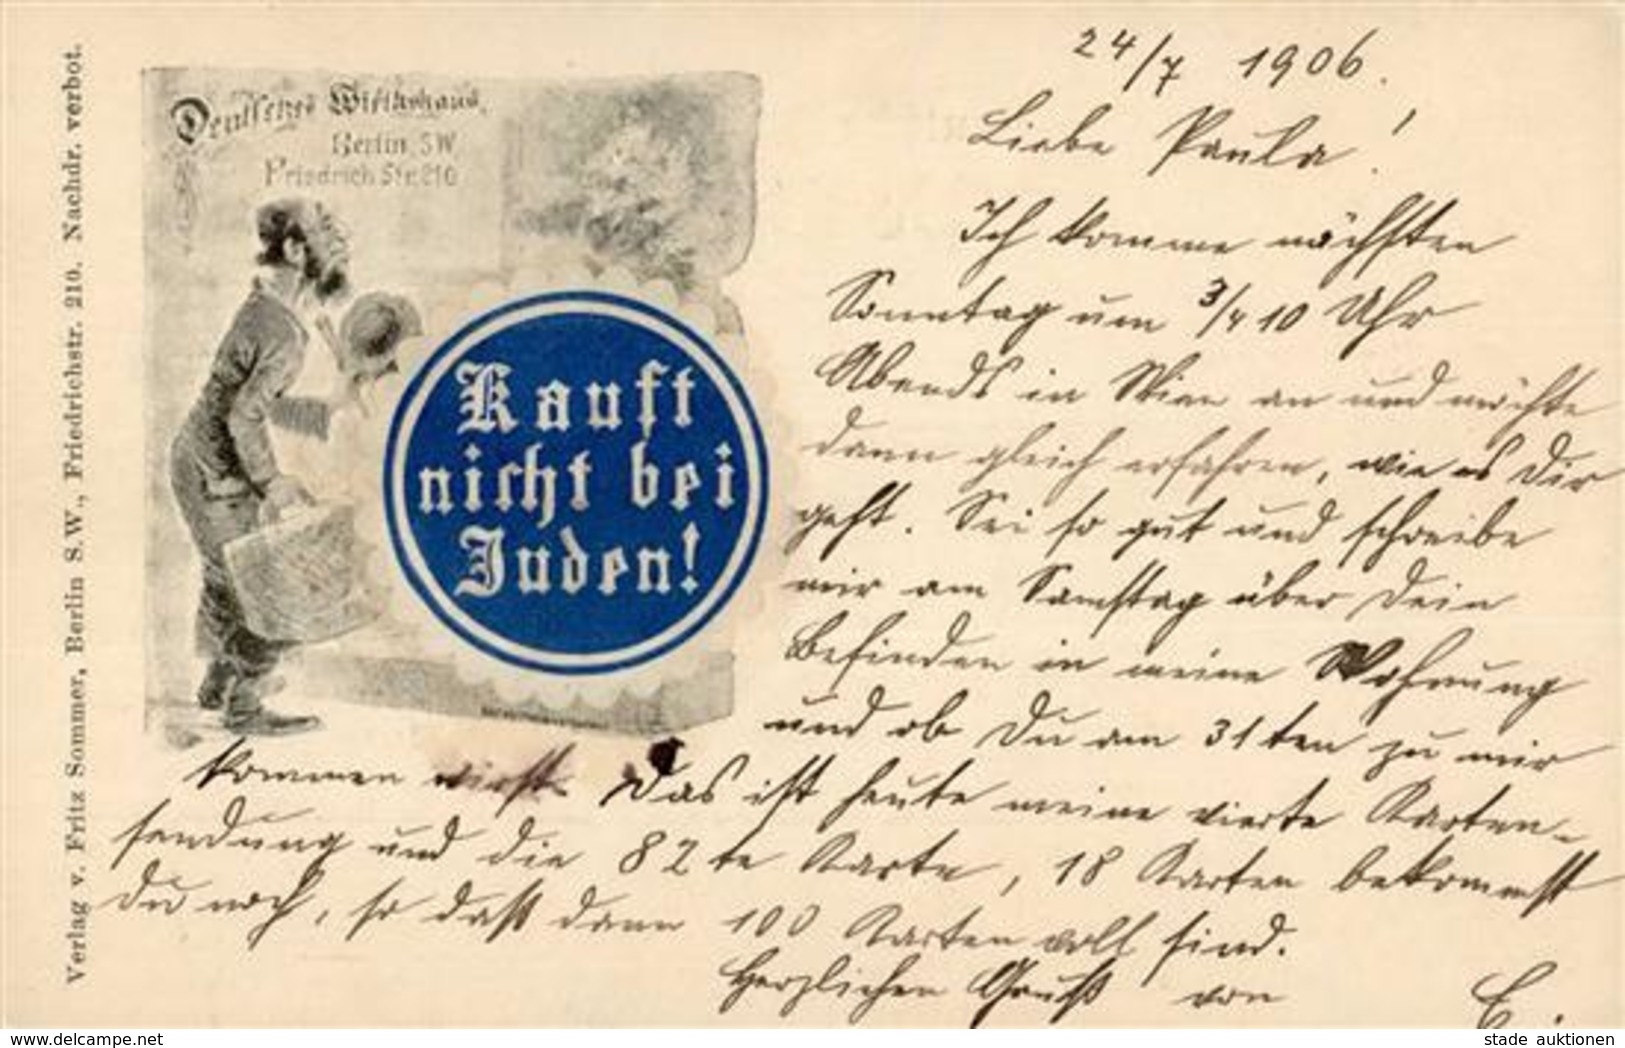 Verlag v. Fritz Sommer, Berlin S.W., Friedrichstr. 210. Nachdr. verbot.
Deutsches Wirthshaus,
Berlin SW
Friedrich Str. 210
Kauft
nicht bei
Juden!
24/7 1906.
Liebe Paula!
Ich komme nächsten
Sonntag um 3/4 10 Uhr
Abends in Wien an und möchte
dann gleich erfahren, wie es Dir
geht. Sei so gut und schreibe
mir am Samstag über Dein
Befinden in meine Wohnung
und ob Du am 31ten zu mir
kommen wirst. Das ist heute meine vierte Karten-
sendung und die 82te Karte, 18 Karten bekommst
Du noch, so daß dann 100 Karten voll sind.
Herzlichen Gruß von
E.
delcampe.net
stade auktionen